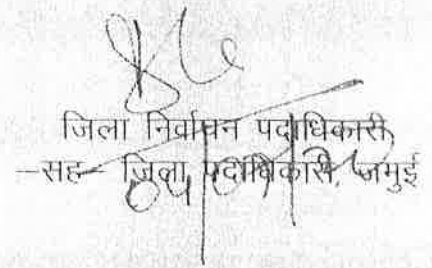 जिला निर्वाचन पदाधिकारी
-सह- जिला पदाधिकारी, जमुई